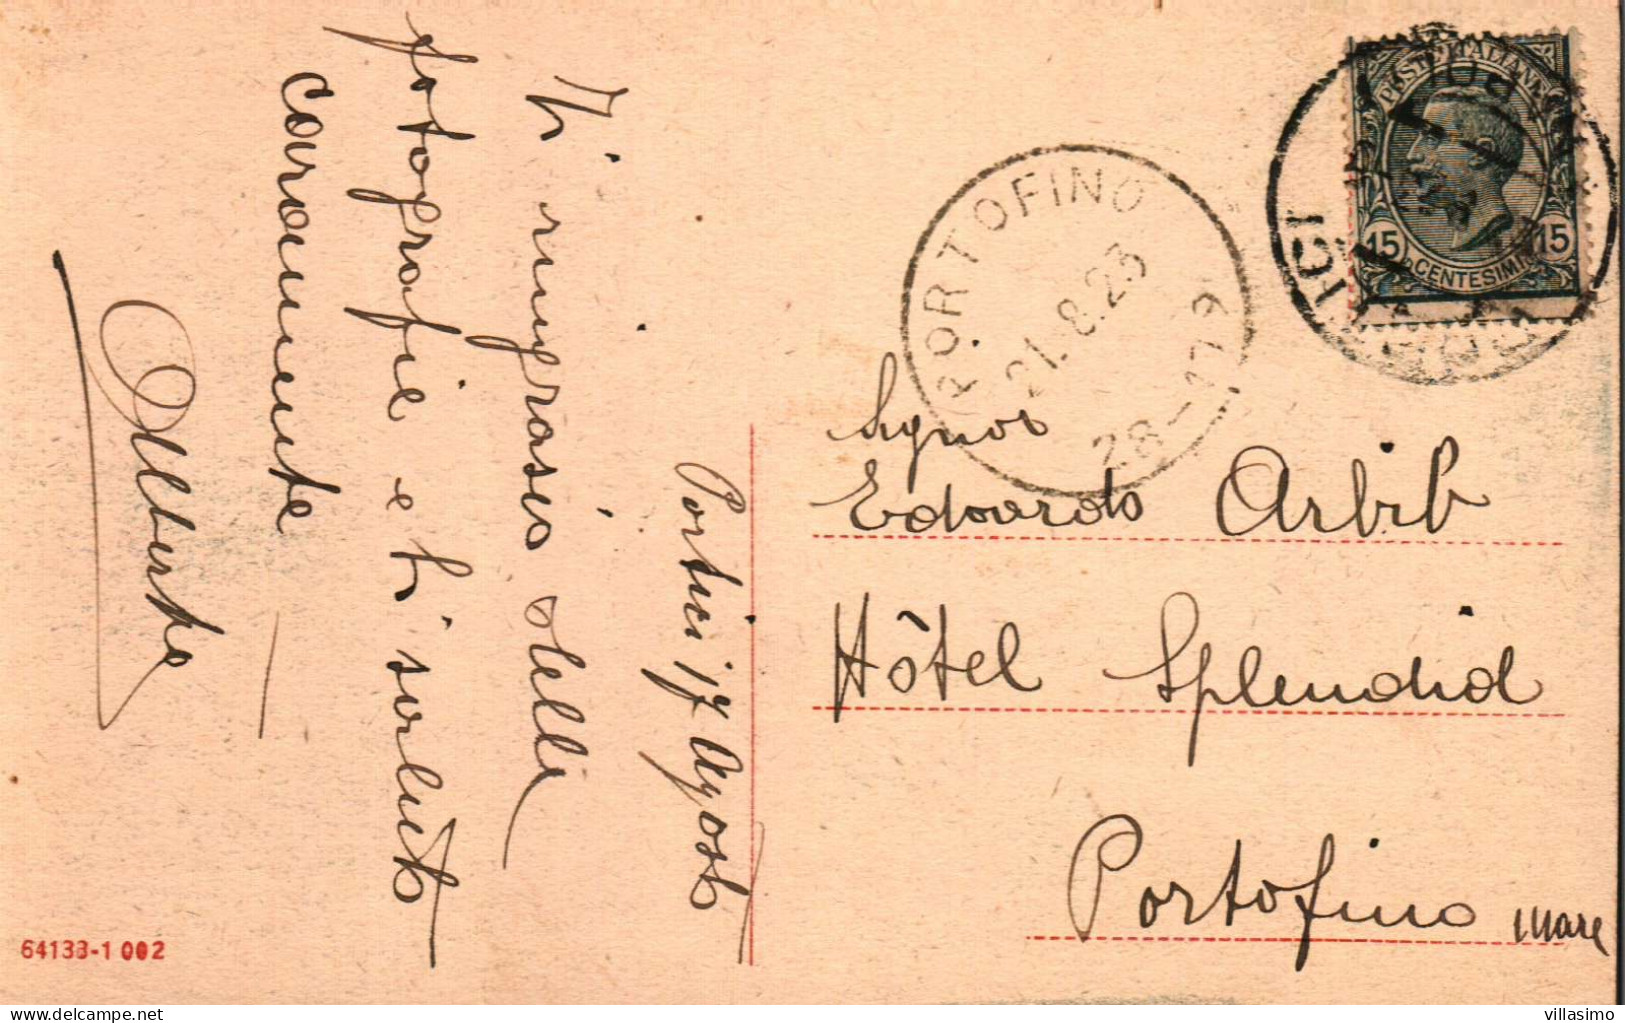 Portici 17 Agosto
Ti ringrazio delle
fotografie e ti saluto
caramente
Alberto
Signor
Edoardo Arbib
Hôtel Splendid
Portofino mare
PORTOFINO
21.8.23
28-179
POSTE ITALIANE
15 CENTESIMI 15
64133-1 002
villasimo delcampe.net